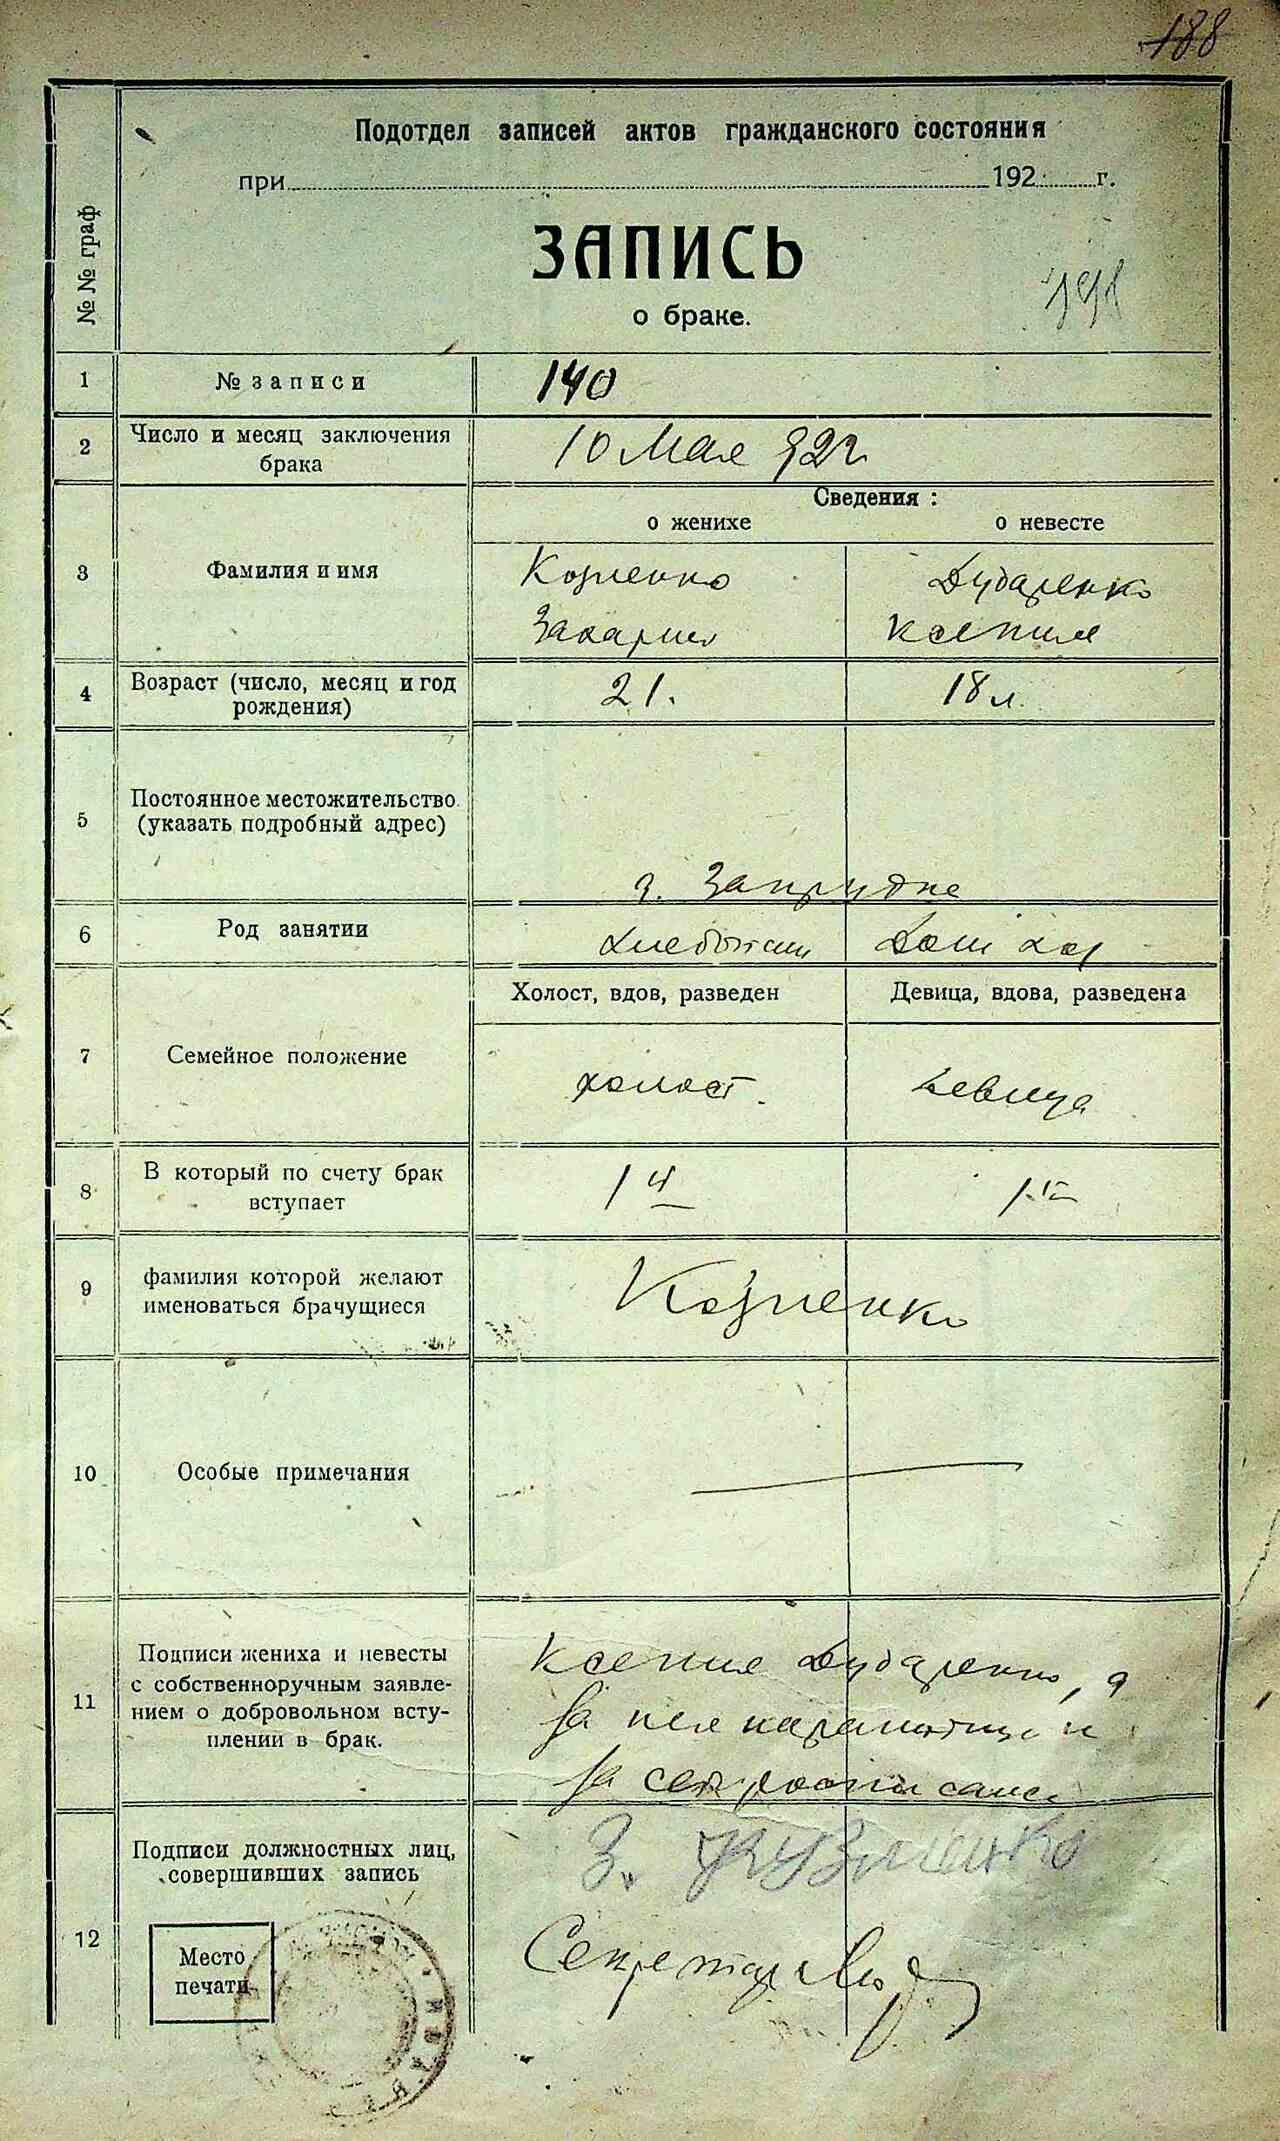 188
Подотдел записей актов гражданского состояния
при 192 г.
№№ граф
ЗАПИСЬ
о браке.
1 № записи 140
2 Число и месяц заключения брака 10 Мая 922г
Сведения :
о женихе о невесте
3 Фамилия и имя
Козленко Дударенко
Захарий Ксения
4 Возраст (число, месяц и год рождения) 21. 18 л.
5 Постоянное местожительство (указать подробный адрес)
Запрудке
6 Род занятии Дом хоз
Холост, вдов, разведен Девица, вдова, разведена
7 Семейное положение холост. девица
8 В который по счету брак вступает 1й 1й
9 фамилия которой желают именоваться брачущиеся Козленко
10 Особые примечания —
11 Подписи жениха и невесты
с собственноручным заявле-
нием о добровольном всту-
плении в брак.
Ксения Дударенко, а
за нея неграмотную и
за себя росписался
12 Подписи должностных лиц,
совершивших запись
З. Кузленко
Секретарь
Место
печати